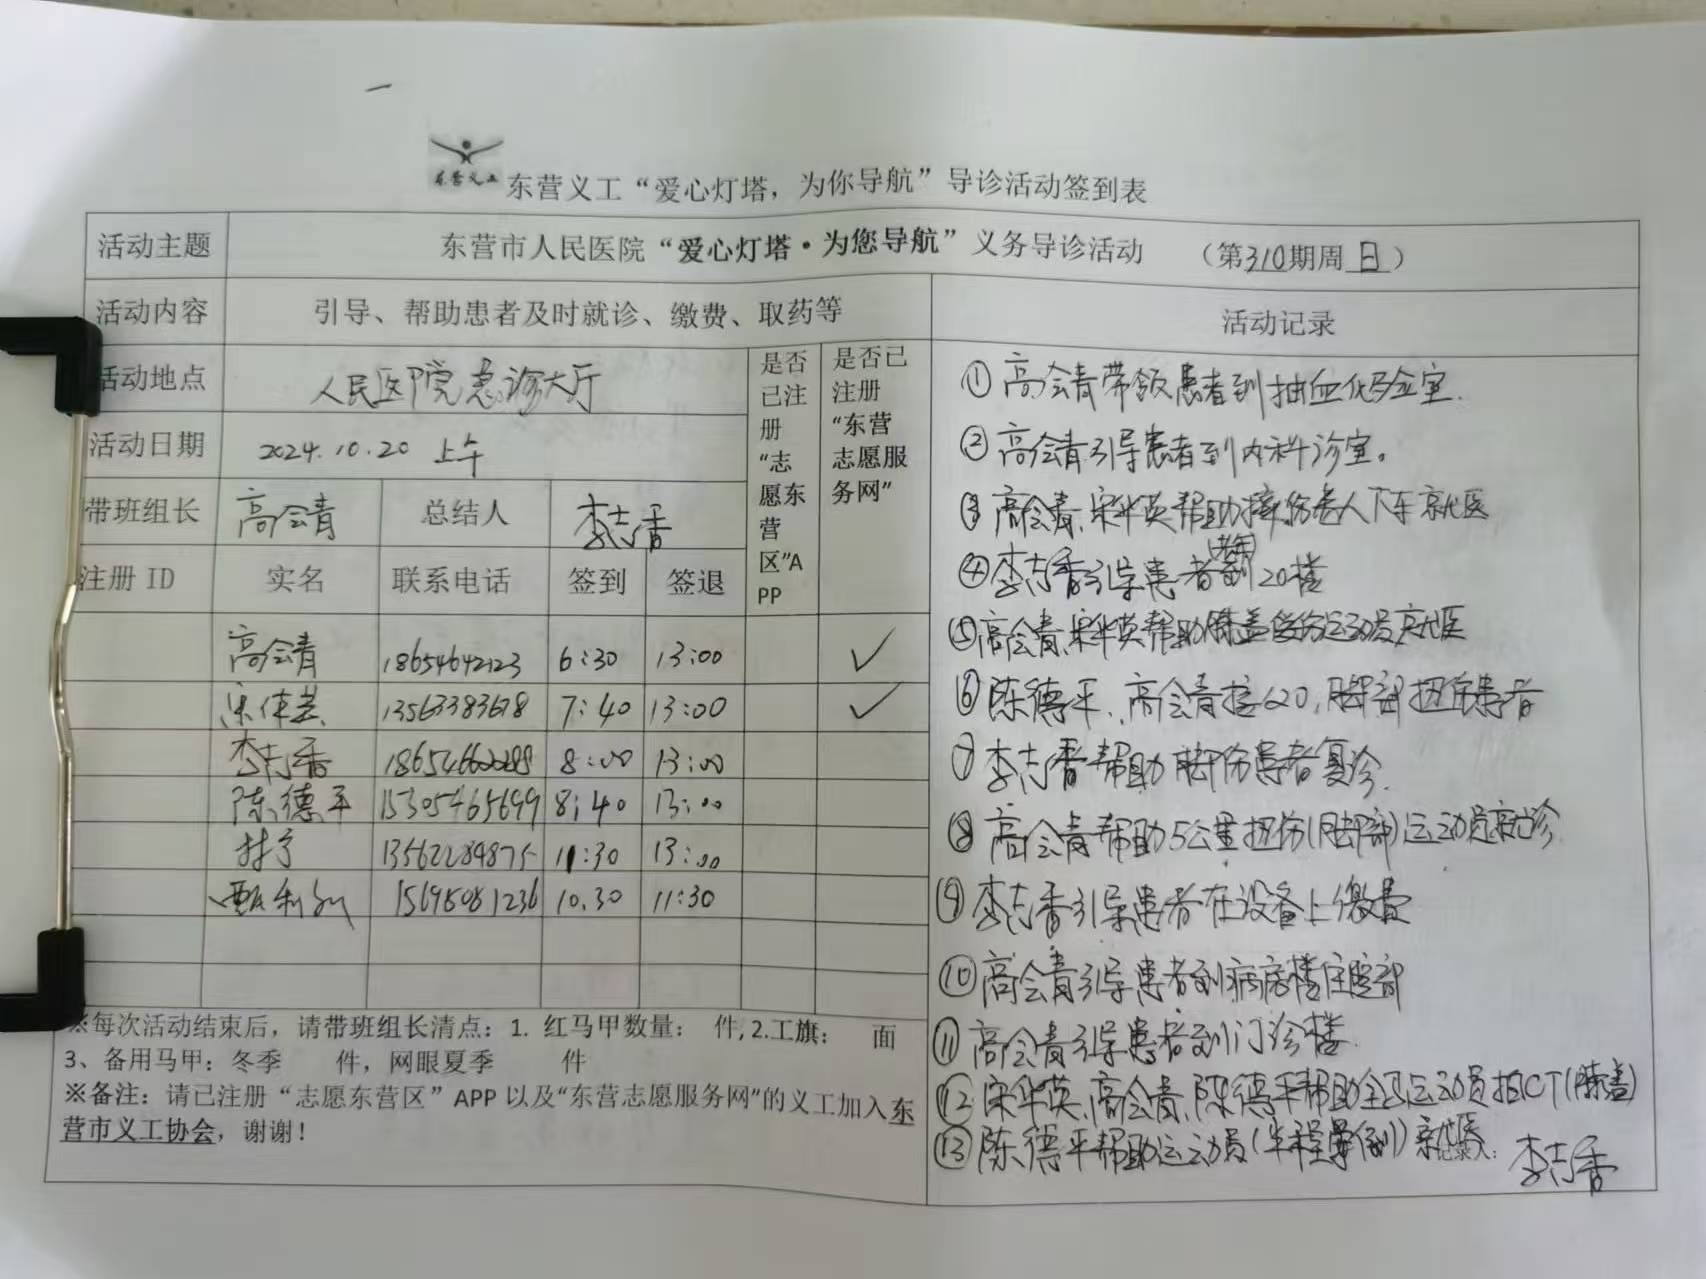 东营义工
东营义工“爱心灯塔，为你导航”导诊活动签到表
活动主题 东营市人民医院“爱心灯塔·为您导航”义务导诊活动 （第310期周日）
活动内容 引导、帮助患者及时就诊、缴费、取药等 活动记录
活动地点 人民医院急诊大厅
是否已注册“志愿东营区”APP
是否已注册“东营志愿服务网”
活动日期 2024.10.20 上午
带班组长 高会青 总结人 李志香
注册 ID 实名 联系电话 签到 签退
高会青 18654642123 6:30 13:00 ✓
13563383678 7:40 13:00 ✓
李志香 8:00 13:00
陈德平 15305465699 8:40 13:00
13562284875 11:30 13:00
15695081236 10.30 11:30
※每次活动结束后，请带班组长清点：1. 红马甲数量： 件, 2.工旗： 面
3、备用马甲：冬季 件，网眼夏季 件
※备注：请已注册“志愿东营区”APP 以及“东营志愿服务网”的义工加入东
营市义工协会，谢谢！
①高会青带领患者到抽血化验室.
②高会青引导患者到内科诊室。
③高会青、宋华英帮助摔伤老人下车就医
④李志香引导患者到20楼
⑤高会青、宋华英帮助膝盖伤运动员就医
⑥陈德平、高会青接120,脚部扭伤患者
⑦李志香帮助脚伤患者复诊.
⑧高会青帮助5公里扭伤(脚部)运动员就诊.
⑨李志香引导患者在设备上缴费
⑩高会青引导患者到病房楼住院部
⑪高会青引导患者到门诊楼.
⑫宋华英、高会青、陈德平帮助全马运动员拍CT(膝盖)
⑬陈德平帮助运动员(半程晕倒)就医
记录人: 李志香